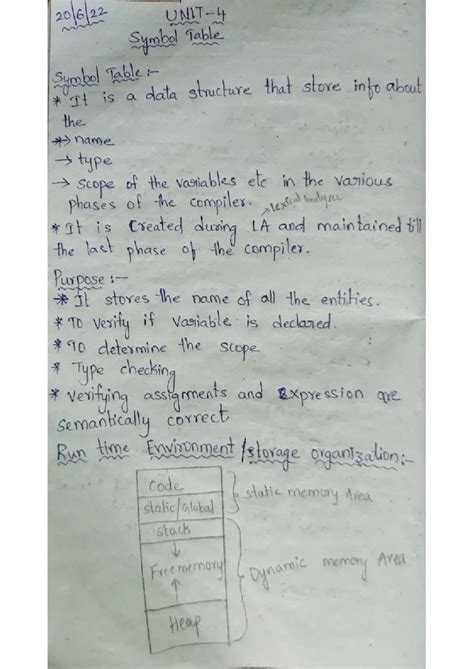 20/6/22 UNIT-4
Symbol Table
Symbol Table :-
* It is a data structure that store info about
the
*→ name
→ type
→ scope of the variables etc in the various
phases of the compiler.
→ Lexical Analyzer
* It is created during LA and maintained till
the last phase of the compiler.
Purpose :-
* It stores the name of all the entities.
* To verify if variable is declared.
* To determine the scope
* Type checking
* Verifying assignments and Expression are
semantically correct
Run time Environment /storage organization:-
Code
static/Global
static memory Area
stack
↓
Free memory
↑
Dynamic memory Area
Heap